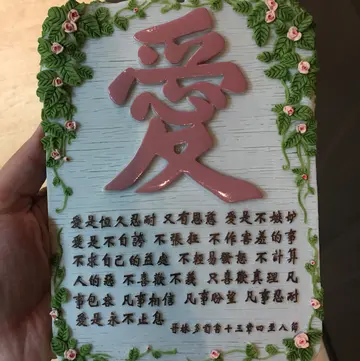 愛
愛是恆久忍耐 又有恩慈 愛是不嫉妒
愛是不自誇 不張狂 不作害羞的事
不求自己的益處 不輕易發怒 不計算
人的惡 不喜歡不義 只喜歡真理 凡
事包容 凡事相信 凡事盼望 凡事忍耐
愛是永不止息
哥林多前書十三章四至八節